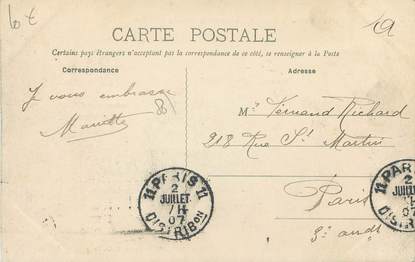 10 €
CARTE POSTALE
Certains pays étrangers n'acceptant pas la correspondance de ce côté, se renseigner à la Poste
Correspondance
Adresse
Je vous embrasse
Mariette
Mr Fernand Richard
218 Rue St Martin
Paris
PARIS 11
2
JUILLET
7H
07
DISTRIBon
11 PARIS
2
JUILLET
07
DISTRIB